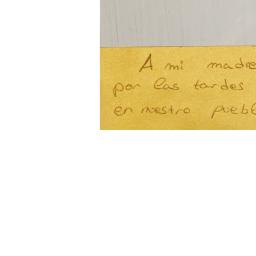 A mi madre
por las tardes
en nuestro puebl